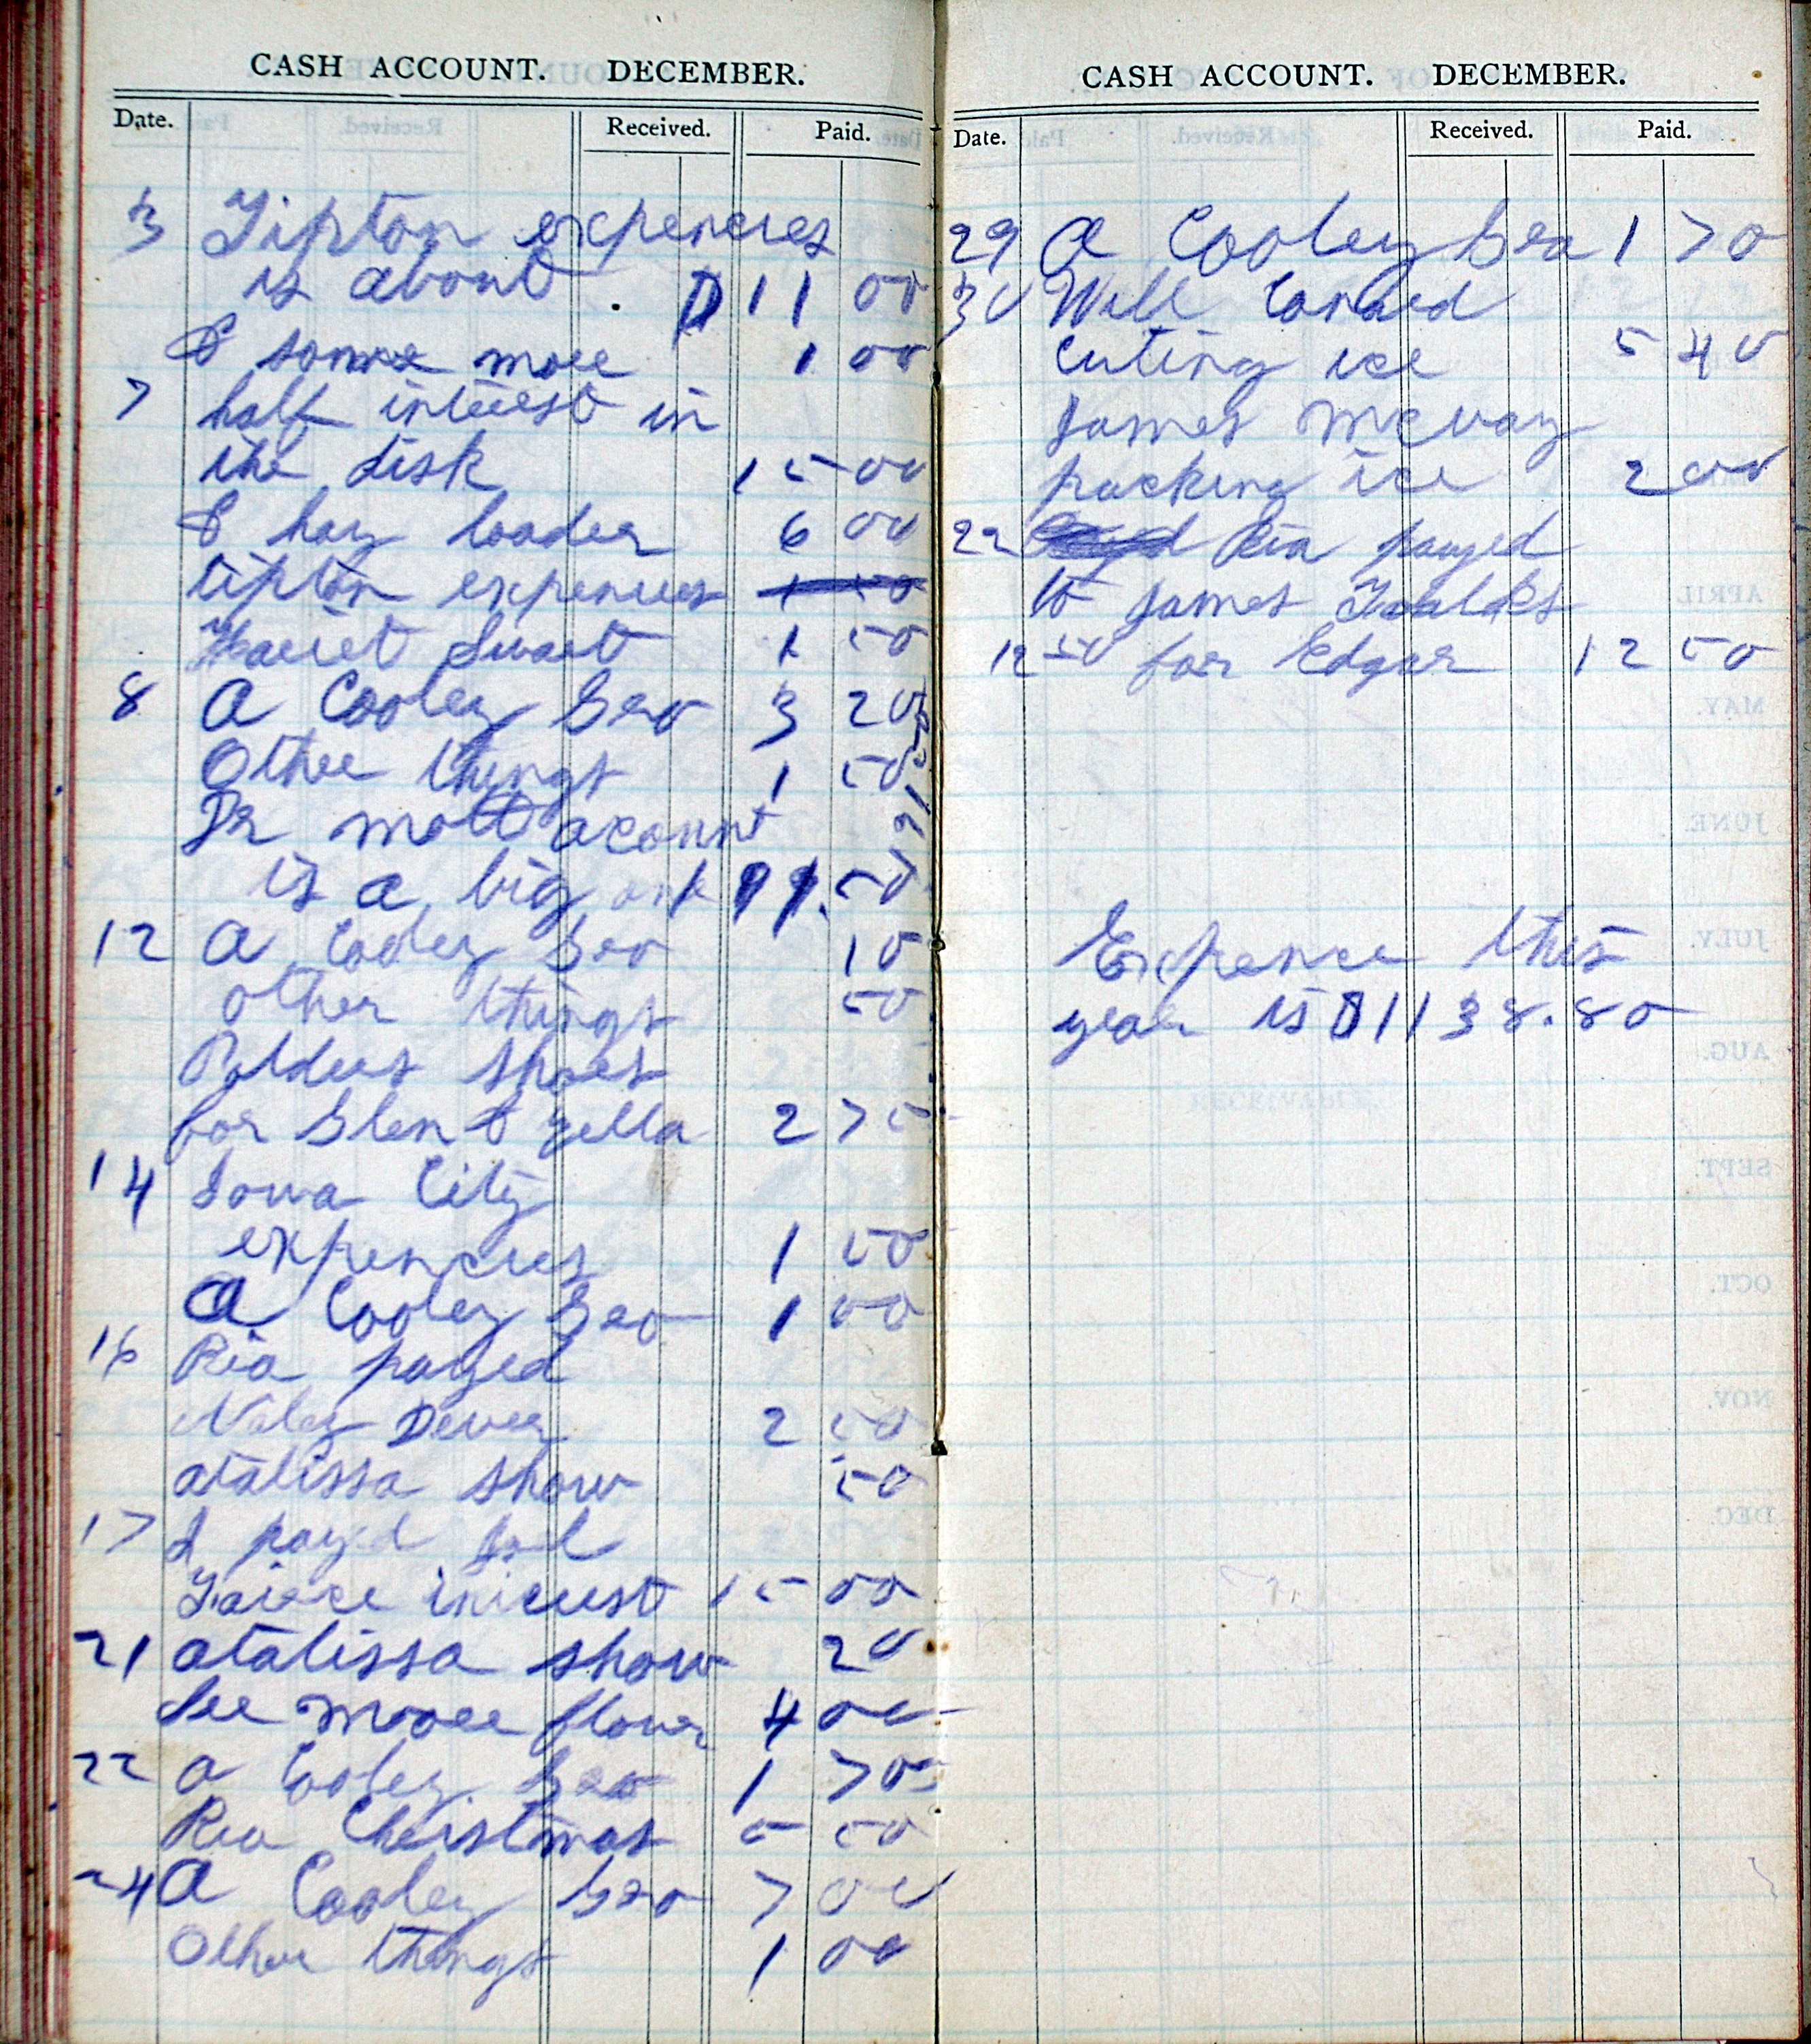 CASH ACCOUNT. DECEMBER.
Date. Received. Paid.
3 Tipton expencies
is about 11 00
& some more 1 00
7 half interest in
the disk 15 00
& hay loader 6 00
tipton expencies
Hariet Swart 1 50
8 A Cooley Gro 3 20
Other things 1 50
Dr mott acount
is a big one
12 A Cooley Gro 10
other things 50
shoes
for Glen & zella 2 75
14 Iowa City
expencies 1 50
A Cooley Gro 1 00
16 Ria payed
Dever 2 50
atalissa show 50
17 I payd
interest 15 00
21 atalissa show 20
Lee moore flower 4 00
22 a Cooley Gro 1 70
Ria Christmas 5 50
24 A Cooley Gro 7 00
Other things 1 00
CASH ACCOUNT. DECEMBER.
Date. Received. Paid.
29 A Cooley Gro 1 70
30 Will Conred
cuting ice 5 40
James Mcvay
packing ice 2 00
22 Ria payed
to James
12 50 for Edgar 12 50
Expence this
year is $1138.80